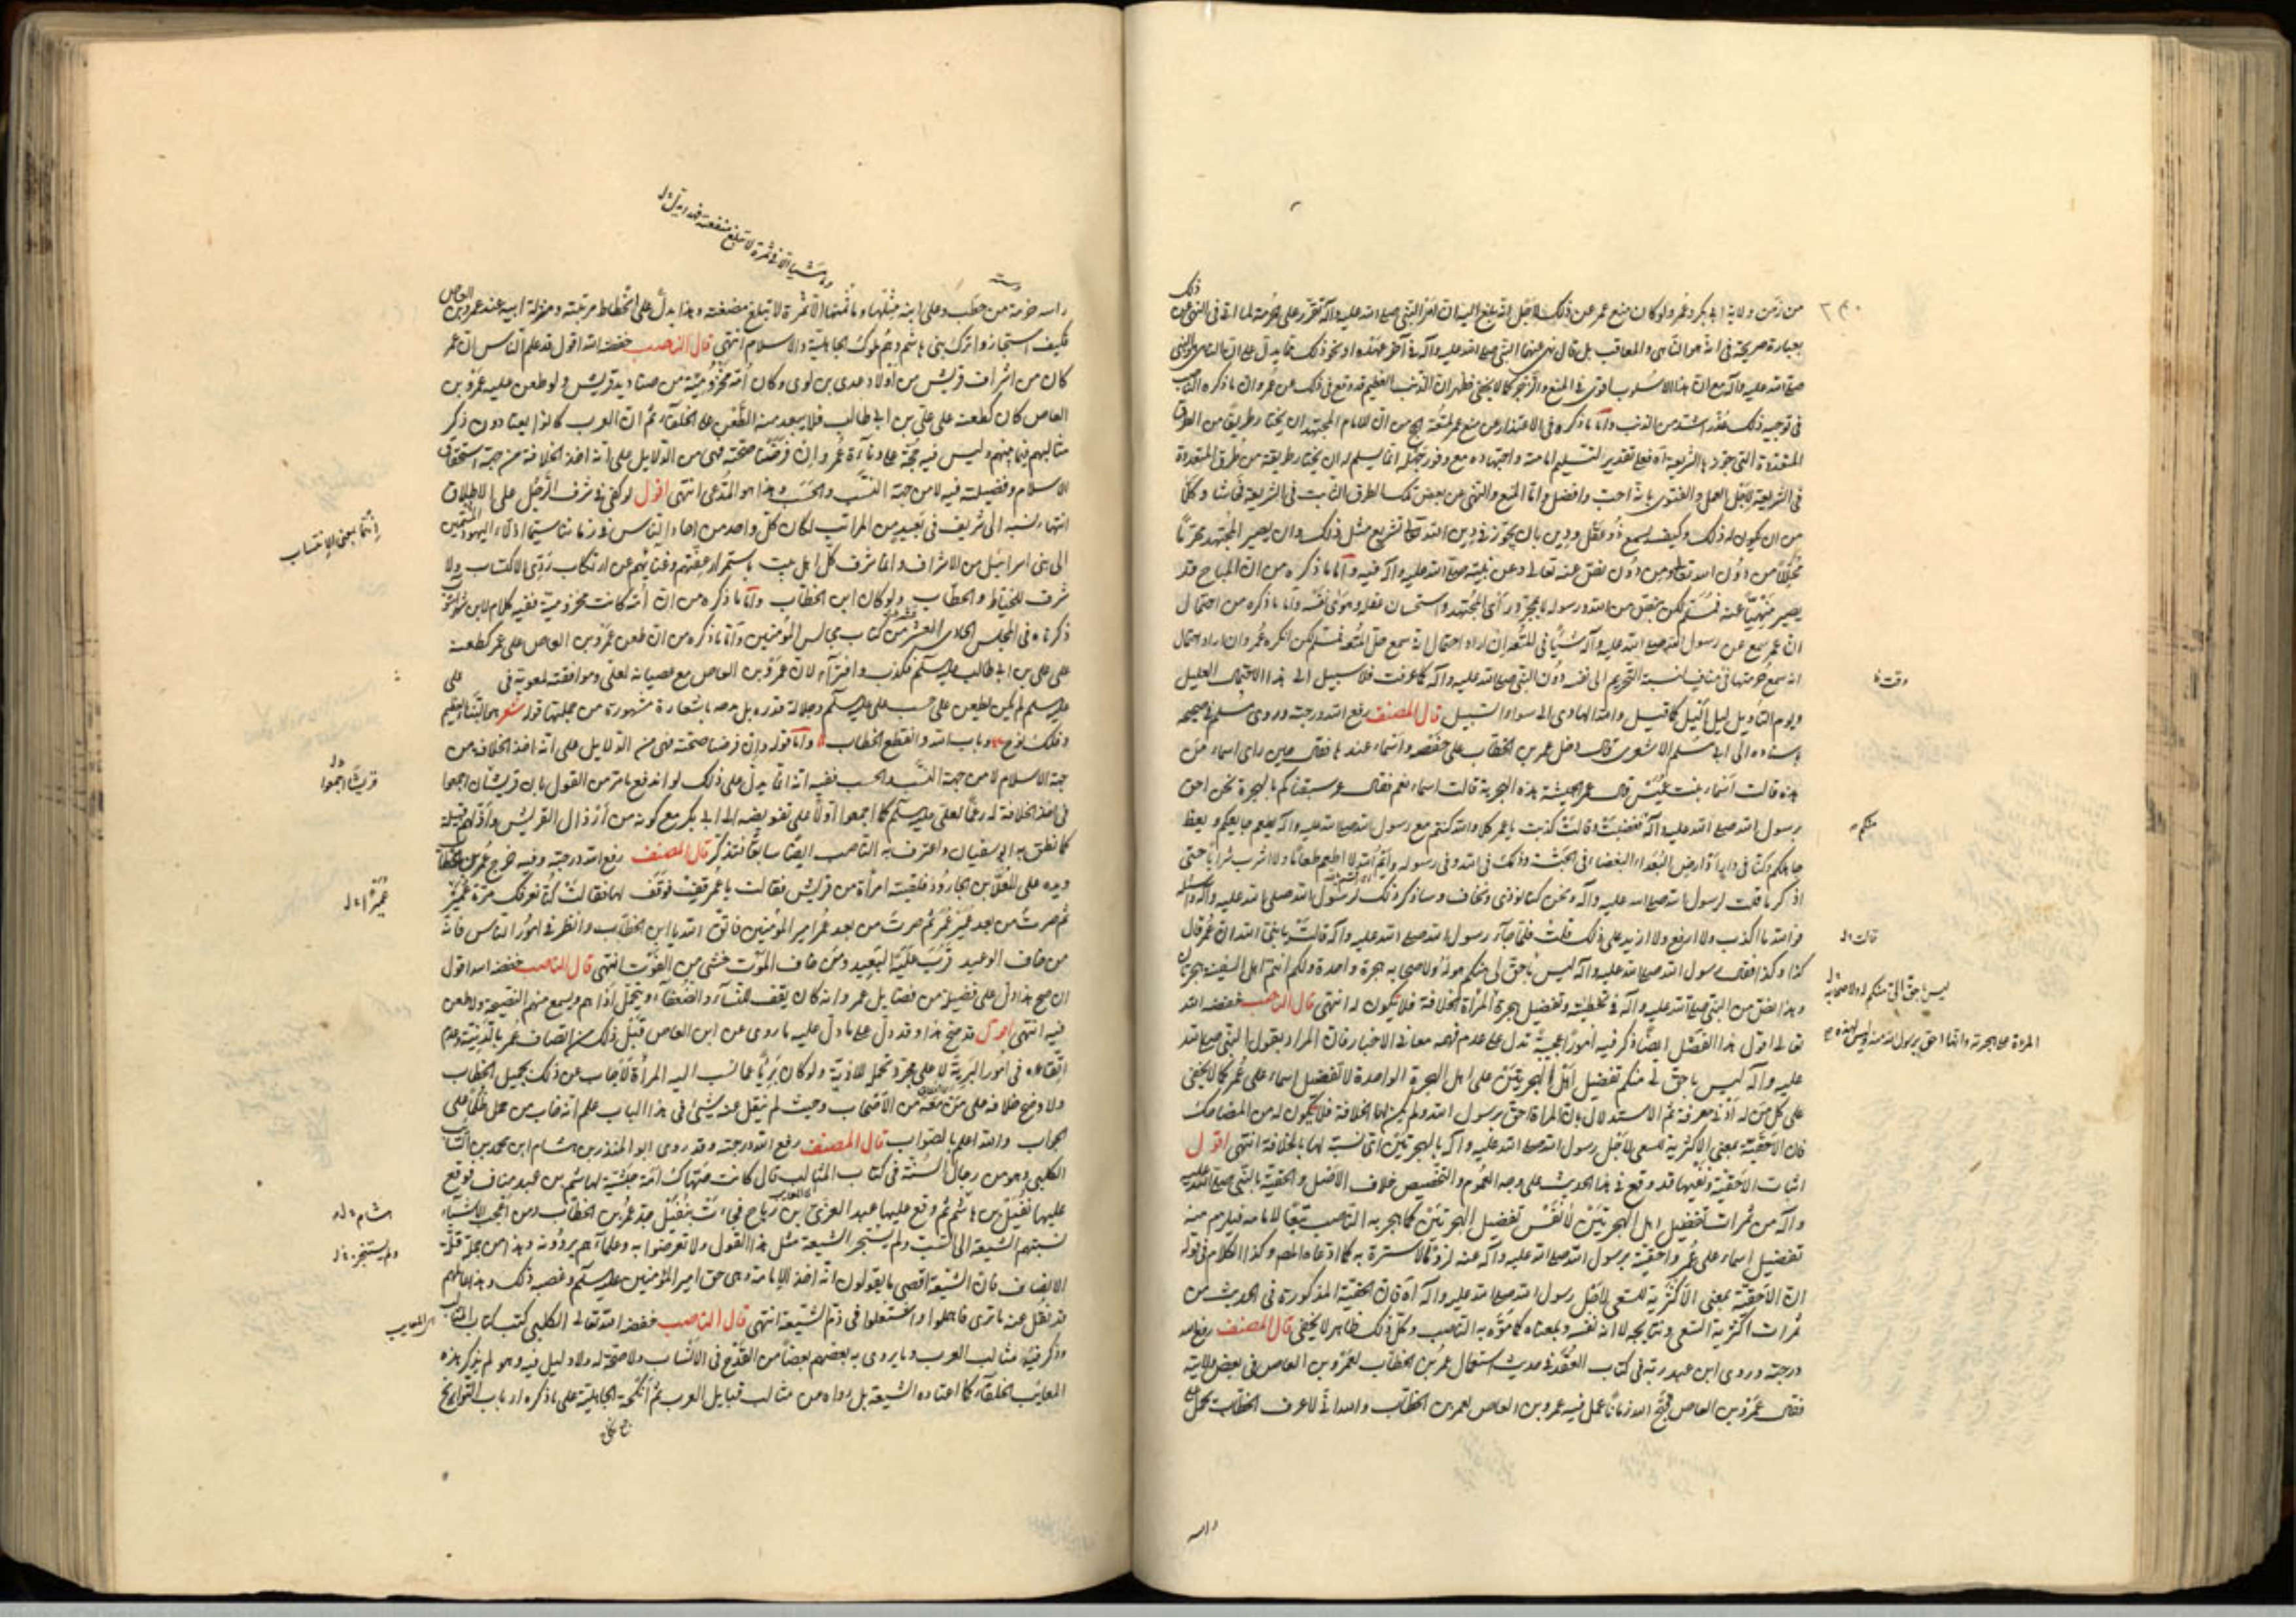 من زمن ولاية ابى بكر وعمر ولو كان منع عمر عن ذلك لاجل انه بلغ اليه ان امر النبي صلى الله عليه وآله تقرر على حرمته لما
بعبارة صريحة في انه هو الناهى والمعاقب بل قال نهى عنهما النبي صلى الله عليه وآله في آخر عهده او نحو ذلك مما يدل على ان الناهى هو النبي
صلى الله عليه وآله مع ان هذا الاسلوب اقوى في المنع والزجر كما لا يخفى فظهر ان الذنب العظيم قد وقع في ذلك عن عمر وان ما ذكره الناصب
في توجيه ذلك عذر اشد من الذنب واما ما ذكره في الاعتذار عن منع عمر للمتعة من ان للامام المجتهد ان يختار طريقا من الطرق
المتعددة التي جوزها الشريعة فعلى تقدير التسليم امامته واجتهاده مع وفور جهله انما يسلم له ان يختار طريقة من طرق المتعددة
في الشريعة لاجل العمل والفتوى بانه احب وافضل واما المنع والنهى عن بعض تلك الطرق الثابت في الشريعة فحاشا وكلا
من ان يكون له ذلك وكيف يسمع ذو عقل ودين بان يجوز في دين الله تعالى تشريع مثل ذلك وان يصير المجتهد محرما
محللا من دون الله تعالى ومن دون نص عنه تعالى وعن نبيه صلى الله عليه وآله فيه واما ما ذكره من ان المباح قد
يصير منهيا عنه فمسلم لكن بنص من الله ورسوله لا بمجرد رأى المجتهد واستحسان عقله وهوى نفسه واما ما ذكره من احتمال
ان عمر سمع عن رسول الله صلى الله عليه وآله شيئا في المتعة ان اراد احتمال انه سمع حل المتعة فمسلم لكن انكره عمر وان اراد احتمال
انه سمع حرمتها فينافيه نسبة التحريم الى نفسه دون النبي صلى الله عليه وآله كما عرفت فلا سبيل الى هذا الاحتمال العليل
ويوم التأويل ليل أليل كما قيل والله الهادى الى سواء السبيل قال المصنف رفع الله درجته وروى مسلم في صحيحه
باسناده الى ابى موسى الاشعرى قال دخل عمر بن الخطاب على حفصة واسماء عندها فقال حين راى اسماء من
هذه قالت اسماء بنت عميس قال عمر الحبشية هذه البحرية قالت اسماء نعم فقال عمر سبقناكم بالهجرة نحن احق
برسول الله صلى الله عليه وآله فغضبت وقالت كذبت يا عمر كلا والله كنتم مع رسول الله صلى الله عليه وآله يطعم جايعكم ويعظ
جاهلكم وكنا في دار او ارض البعداء البغضاء في الحبشة وذلك في الله وفي رسوله وايم الله لا اطعم طعاما ولا اشرب شرابا حتى
اذكر ما قلت لرسول الله صلى الله عليه وآله ونحن كنا نوذى ونخاف وساذكر ذلك لرسول الله صلى الله عليه وآله
فوالله ما اكذب ولا ازيغ ولا ازيد على ذلك قلت فلما جاء رسول الله صلى الله عليه وآله قالت يا نبى الله ان عمر قال
كذا وكذا فقال رسول الله صلى الله عليه وآله ليس باحق لي منكم وله ولاصحابه هجرة واحدة ولكم انتم اهل السفينة هجرتان
وهذا نص من النبي صلى الله عليه وآله في تخطئته وتفضيل هجرة المرأة للخلافة فلا يكون له انتهى قال الناصب خفضه الله
تعالى اقول هذا الفصل ايضا ذكر فيه امورا عجيبة تدل على عدم فهمه معاني الاخبار فان المراد بقول النبي صلى الله
عليه وآله ليس باحق لي منكم تفضيل اهل الهجرتين على اهل الهجرة الواحدة لا تفضيل اسماء على عمر كما لا يخفى
على كل من له ادنى معرفة ثم الاستدلال بان المرأة احق برسول الله ولم يكن لها الخلافة فلا يكون له من المضاحك
فان الاحقية بمعنى الاكثرية للسعى لاجل رسول الله صلى الله عليه وآله بالهجرتين اى نسبة لها بالخلافة انتهى اقول
اثبات الاحقية ونفيها قد وقع في هذا الحديث على وجه العموم والتخصيص خلاف الاصل والحقية بالنبي صلى الله عليه
وآله من ثمرات تفضيل اهل الهجرتين لا نفس تفضيل الهجرتين كما هجر به الناصب تبعا لامامه فيلزم منه
تفضيل اسماء على عمر واحقيته برسول الله صلى الله عليه وآله عنه لزوما لا سترة به كما ادعاه المص وكذا الكلام في قوله
ان الاحقية بمعنى الاكثرية للسعى لاجل رسول الله صلى الله عليه وآله آه فان الحقية المذكورة في الحديث من
ثمرات اكثرية السعى ونتايجه لا انه نفسه وبمعناه كما موه به الناصب وكل ذلك ظاهر لا يخفى قال المصنف رفع الله
درجته وروى ابن عبد ربه في كتاب العقد في حديث استعمال عمر بن الخطاب لعمرو بن العاص في بعض ولايته
فقال عمرو بن العاص قبح الله زمانا عمل فيه عمرو بن العاص لعمر بن الخطاب والله اني لاعرف الخطاب يحمل على
راسه
وقت
منكم
قالت
ليس باحق الى منكم له ولاصحابه
راسه حزمة من حطب وعلى ابنه مثلها وما ثمنها الا تمرة لا تبلغ مضغته وهذا يدل على انحطاط مرتبته ومنزلة ابيه عند عمرو بن العاص
فكيف استجازوا ترك بنى هاشم وهم ملوك الجاهلية والاسلام انتهى قال الناصب خفضه الله اقول قد علم الناس ان عمر
كان من اشراف قريش من اولاد عدى بن لوى وكان امه مخزومية من صناديد قريش ولو طعن عليه عمرو بن
العاص كان كطعنه على على بن ابى طالب فلا يبعد منه الطعن على الخلفاء ثم ان العرب كانوا يعتادون ذكر
مثالبهم فيما بينهم وليس فيه حجة على دناءة عمر وان فرضنا صحته فهى من الدلايل على انه اخذ الخلافة من جهة استحقاق
الاسلام وفضيلته فيه لا من جهة النسب والحسب وهذا هو المدعى انتهى اقول لو كفى في شرف الرجل على الاطلاق
انتهاء نسبه الى شريف في بعيد من المراتب لكان كل واحد من آحاد الناس في زماننا سيما اذلاء اليهود المنتمين
الى بنى اسرائيل من الاشراف وانما شرف كل اهل بيت باستمرار عفتهم وغنائهم عن ارتكاب ردى الاكتساب ولا
شرف للخياط والحطاب ولو كان ابن الخطاب واما ما ذكره من ان امه كانت مخزومية ففيه كلام لابن شهر آشوب
ذكرناه في المجلس الحادى العشر من كتاب مجالس المؤمنين واما ما ذكره من ان طعن عمرو بن العاص على عمر كطعنه
على على بن ابى طالب عليه السلام فكذب وافتراء لان عمرو بن العاص مع عصيانه لعلى وموافقته لمعوية في على
عليه السلم لم يكن يطعن على حسب على عليه السلم وجلالة قدره بل مدحه باشعاره مشهورة من جملتها قوله شعر هو النبأ العظيم
وفلك نوح وباب الله وانقطع الخطاب واما قوله وان فرضنا صحته فهى من الدلايل على انه اخذ الخلافة من
جهة الاسلام لا من جهة النسب والحسب ففيه انه انما يدل على ذلك لو اندفع ما مر من القول بان قريشا اجمعوا
في اخذ الخلافة له رغما لعلى عليه السلم كما اجمعوا اولا على تفويضه الى ابى بكر مع كونه من ارذال القريش واذلهم قبيلة
كما نطق به ابو سفيان واعترف به الناصب ايضا سابقا فتذكر قال المصنف رفع الله درجته وفيه خرج عمر بن الخطاب
ويده على المعلى بن الجارود فلقيته امرأة من قريش فقالت يا عمر فوقف لها فقالت كنا نعرفك مرة عميرا
ثم صرت من بعد عمير عمر ثم صرت من بعد عمر امير المؤمنين فاتق الله يا ابن الخطاب وانظر في امور الناس فانه
من خاف الوعيد قرب عليه البعيد ومن خاف الموت خشى من الفوت انتهى قال الناصب خفضه الله اقول
ان صح هذا دل على فضيلة من فضايل عمر وانه كان يقف للنساء والضعفاء ويتحمل اذاهم ويسمع منهم النصيحة ولا طعن
فيه انتهى اقول قد صح هذا وقد دل على ما دل عليه ما روى عن ابن العاص قبل ذلك من اتصاف عمر بالدنية وعدم
اتقاءه في امور البرية لا على مجرد تحمل الاذية ولو كان بريا عما نسب اليه المرأة لاجاب عن ذلك بجميل الخطاب
ولاوضح خلافه على من معه من الاصحاب وحيث لم ينقل عنه شيئ في هذا الباب علم انه خاب من حمل ظلما على
الجواب والله اعلم بالصواب قال المصنف رفع الله درجته وقد روى ابو المنذر بن هشام ابن محمد بن السائب
الكلبى وهو من رجال السنة في كتاب المثالب قال كانت صهاك امة حبشية لهاشم بن عبد مناف فوقع
عليها نفيل بن هاشم ثم وقع عليها عبد العزى بن رياح فجاءت بنفيل جد عمر بن الخطاب ومن اعجب الاشياء
نسبتهم الشيعة الى السب ولم يستجر الشيعة مثل هذا القول ولا تعرضوا به وعلماءهم يروونه وهذا من جملة قلة
الانصاف فان الشيعة اقصى ما يقولون انه اخذ الامامة وهى حق امير المؤمنين عليه السلم وغصبه ذلك وهذا عالمهم
قد نقل عنه ما ترى فاهملوا واشتغلوا في ذم الشيعة انتهى قال الناصب خفضه الله تعالى الكلبى كتب كتاب المثالب
وذكر فيه مثالب العرب وما يروى به بعضهم بعضا من القدح في الانساب ولا صحة له ولا دليل فيه وهو لم يذكر هذه
المعايب للخلفاء كما اعتاده الشيعة بل رواه من مثالب قبايل العرب ثم انكحة الجاهلية على ما ذكره ارباب التواريخ
انتما بمعنى الانتساب
قريشا اجمعوا
عميرا
هشام
ولم يستجر